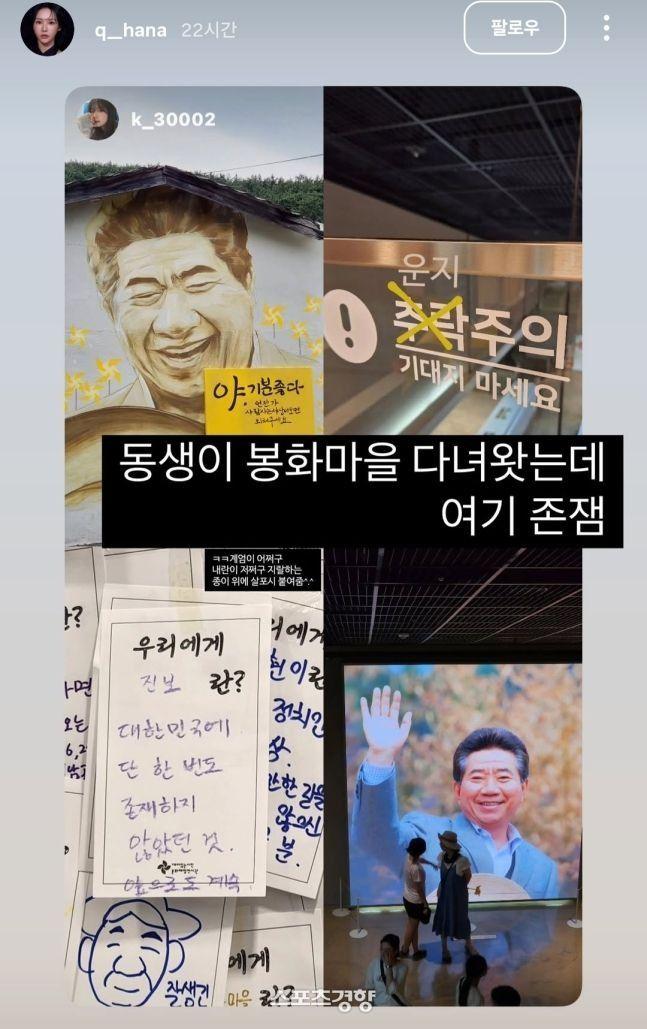 q__hana 22시간 팔로우
k_30002
야. 기분좋다~
운지
추락주의
기대지 마세요
동생이 봉화마을 다녀왓는데
여기 존잼
ㅋㅋ계엄이 어쩌구
내란이 저쩌구 지랄하는
종이 위에 살포시 붙여줌^.^
우리에게
진보 란?
대한민국에
단 한 번도
존재하지
않았던 것.
앞으로도 계속
란?
에게
란
정치인
분.
잘생긴
에게
마을 란?
스포츠경향